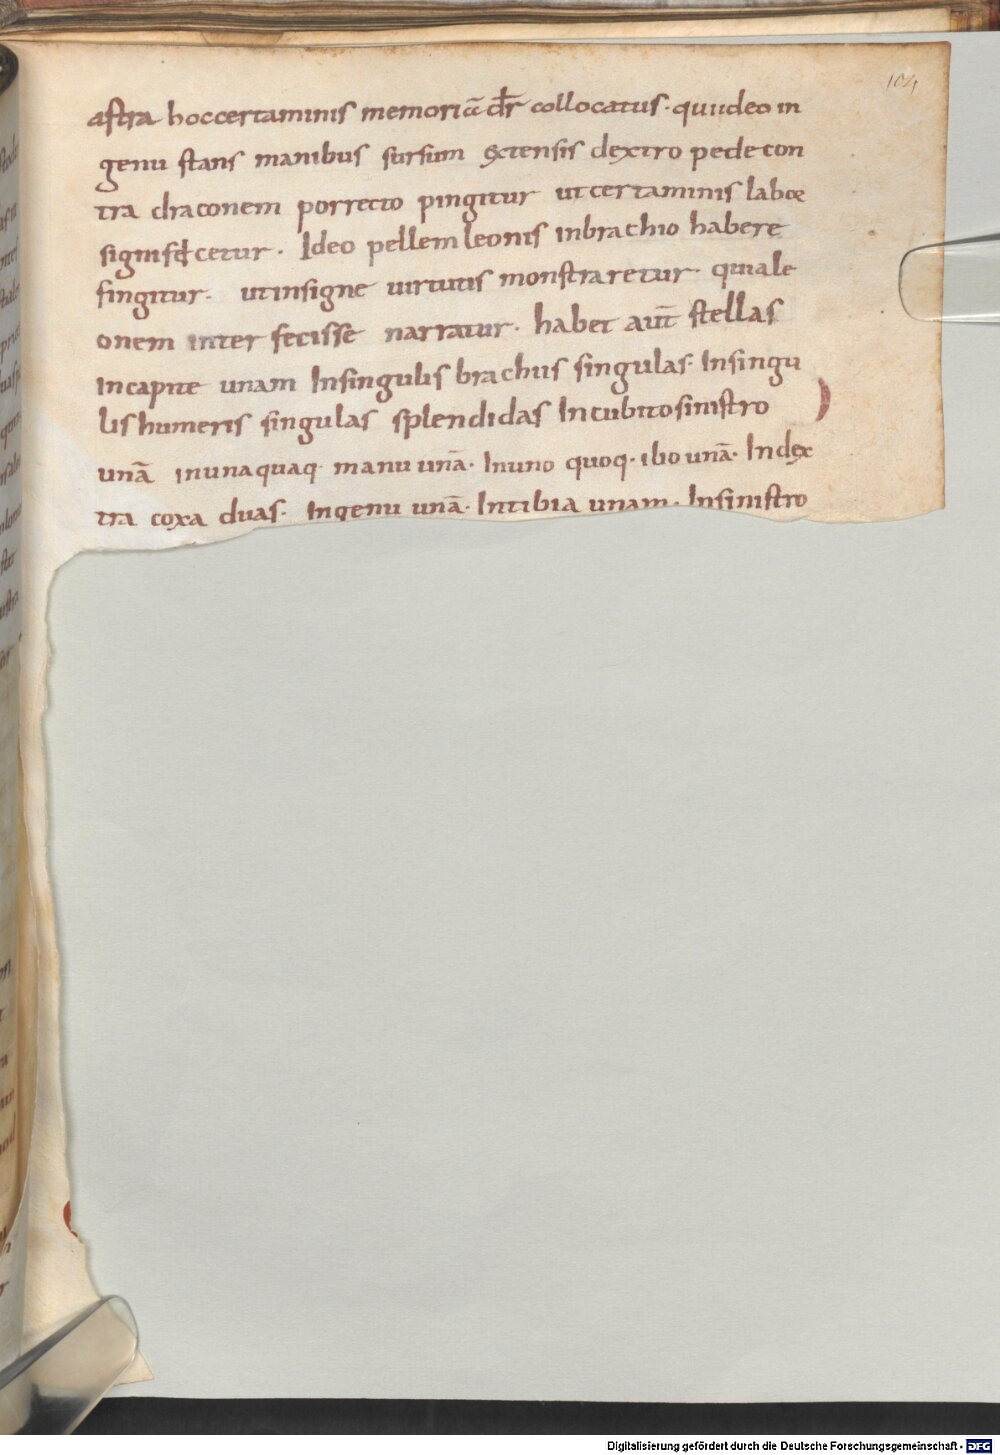 104
astra hoc certaminis memoriā dr̄ collocatus · qui ideo in
genu stans manibus sursum extensis dextro pede con
tra draconem porrecto pingitur ut certaminis labor
significetur · Ideo pellem leonis in brachio habere
fingitur · ut insigne uirtutis monstraretur · quia le
onem inter fecisse narratur · habet aūt stellas
In capite unam In singulis brachiis singulas · In singu
lis humeris singulas splendidas In cubito sinistro
unā in una quaq · manu unā · In uno quoq · ibo unā · In dex
tra coxa duas · In genu unā · In tibia unam · In sinistro
Digitalisierung gefördert durch die Deutsche Forschungsgemeinschaft - DFG